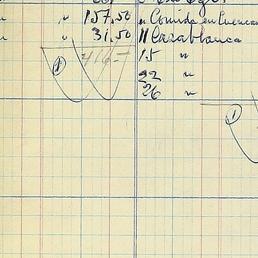 " 157,50 " Comida en Cuenca
" 31,50 11 Casablanca
416-
15 "
22 "
26 "
1